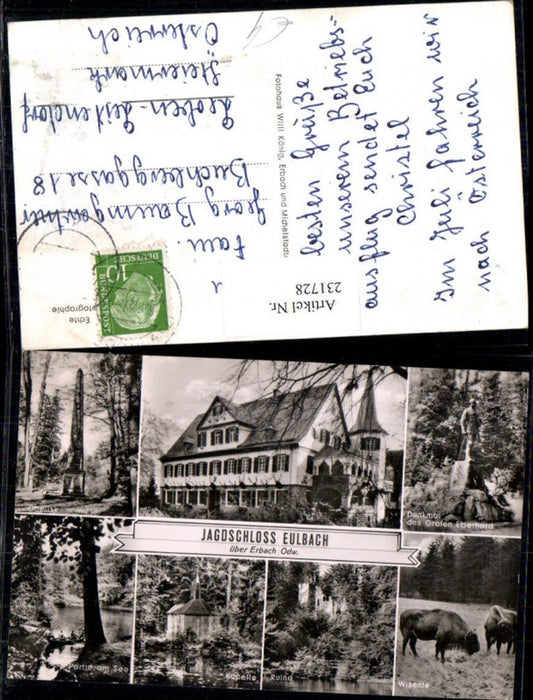 besten Grüße
unserem Betriebs-
ausflug sendet Euch
Christel
Im Juli fahren wir
nach Österreich
Fotohaus Willi König, Erbach und Michelstadt
Artikel Nr.
231728
Fam.
Georg Baumgartner
Buchberggasse 18
Leoben-Leitendorf
Steiermark
Österreich
DEUTSCHE
BUNDESPOST
Echte
JAGDSCHLOSS EULBACH
über Erbach Odw.
Denkmal
des Grafen Eberhard
Partie am See
Kapelle
Ruine
Wisente